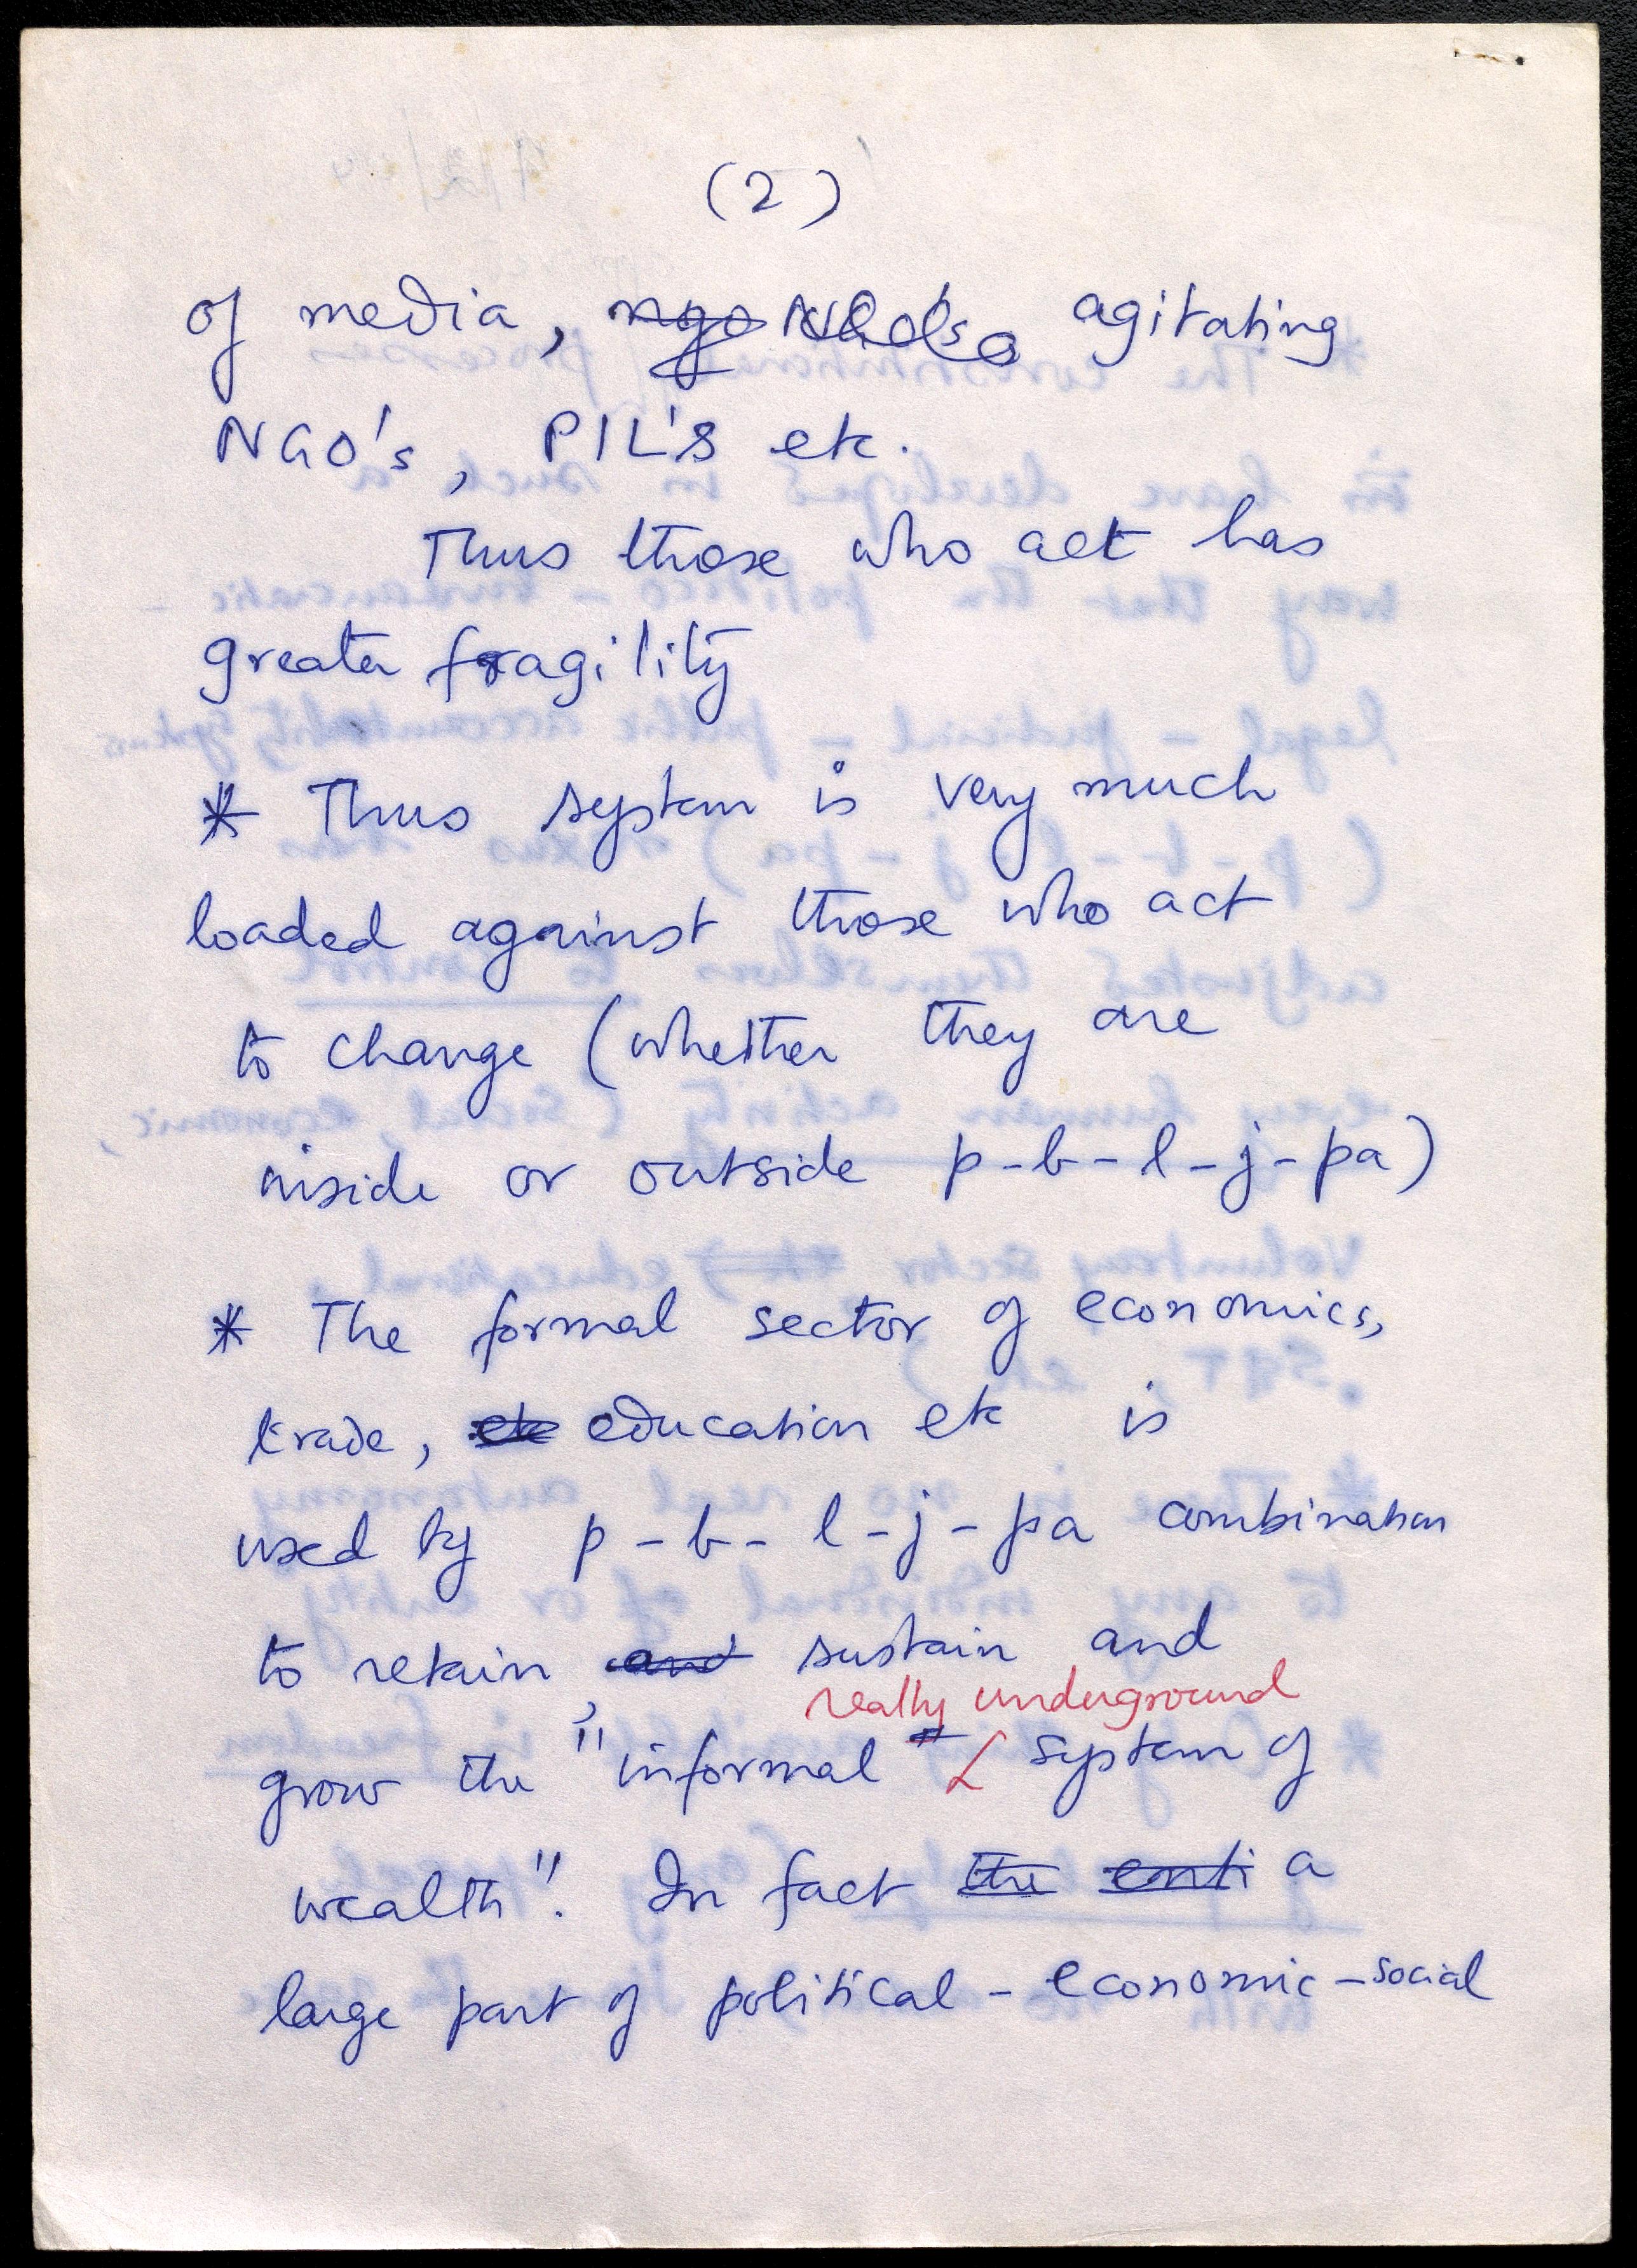 (2)
of media, ngo NGO's agitating
NGO's, PIL's etc.
Thus those who act has
greater fragility
* Thus system is very much
loaded against those who act
to change (whether they are
inside or outside p-b-l-j-pa)
* The formal sector of economics,
trade, etc education etc is
used by p-b-l-j-pa combination
to retain, and sustain and
really underground
grow the "informal" system of
wealth". In fact the enti a
large part of political - economic - social